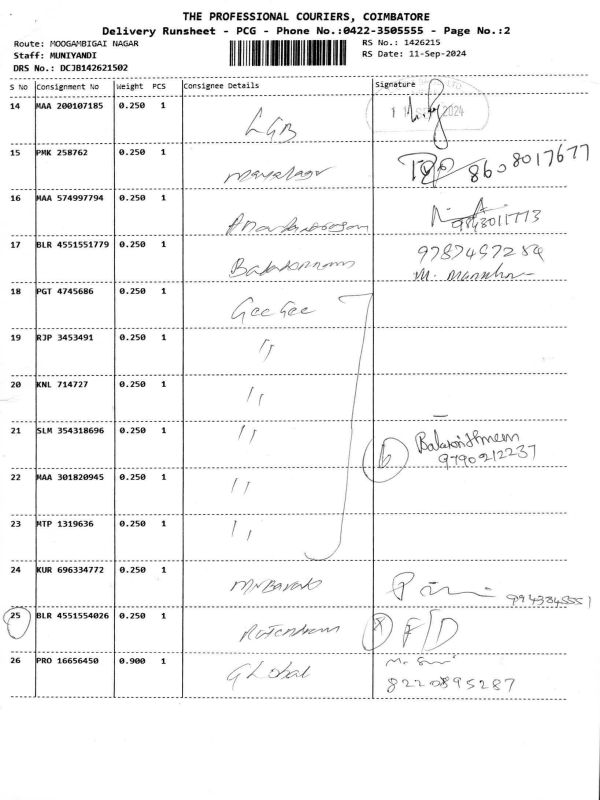 THE PROFESSIONAL COURIERS, COIMBATORE
Delivery Runsheet - PCG - Phone No.:0422-3505555 - Page No.:2
Route: MOOGAMBIGAI NAGAR RS No.: 1426215
Staff: MUNIYANDI RS Date: 11-Sep-2024
DRS No.: DCJB142621502
S No Consignment No Weight PCS Consignee Details Signature
14 MAA 200107185 0.250 1 LGB 2024
15 PMK 258762 0.250 1 8608017677
16 MAA 574997794 0.250 1 9843011773
17 BLR 4551551779 0.250 1 9787497284
18 PGT 4745686 0.250 1 Gee Gee
19 RJP 3453491 0.250 1 "
20 KNL 714727 0.250 1 "
21 SLM 354318696 0.250 1 " 6
9790212237
22 MAA 301820945 0.250 1 "
23 MTP 1319636 0.250 1 "
24 KUR 696334772 0.250 1
25 BLR 4551554026 0.250 1
26 PRO 16656450 0.900 1 Global
8220895287